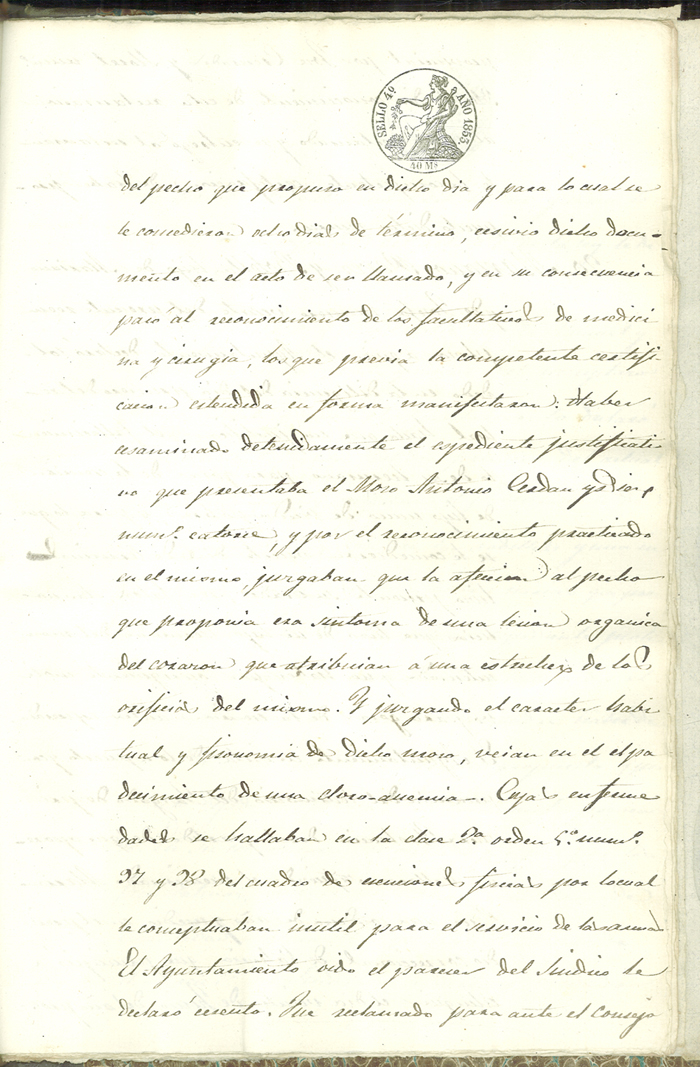 SELLO 4º AÑO 1855.
40 Ms
del pecho que propuso en dicho dia y para lo cual se
le concedieron ocho dias de término, ecsivio dicho docu-
mento en el acto de ser llamado, y en su consecuencia
pasó al reconocimiento de los facultativos de medici
na y cirugia, los que previa la competente certifi
cacion estendida en forma manifestaron: Haber
ecsaminado detenidamente el espediente justificati
vo que presentaba el Moso Antonio Cerdan y
numº. catorce, y por el reconocimiento practicado
en el mismo, jusgaban que la afeccion al pecho
que proponia era sintoma de una lesion organica
del corazon que atribuian á una estrechez de los
orificios del mismo. Y jurgando el caracter habi
tual y fisonomia de dicho moso, veian en el el pa
decimiento de una cloro-anemia. Cuyas enferme
dades se hallaban en la clase 2ª. orden 5º. numº.
37 y 38 del cuadro de ecenciones fisicas por lo cual
le conceptuaban inutil para el servicio de las armas
El Ayuntamiento oido el parecer del Sindico le
declaró ecsento. Fue reclamado para ante el Consejo